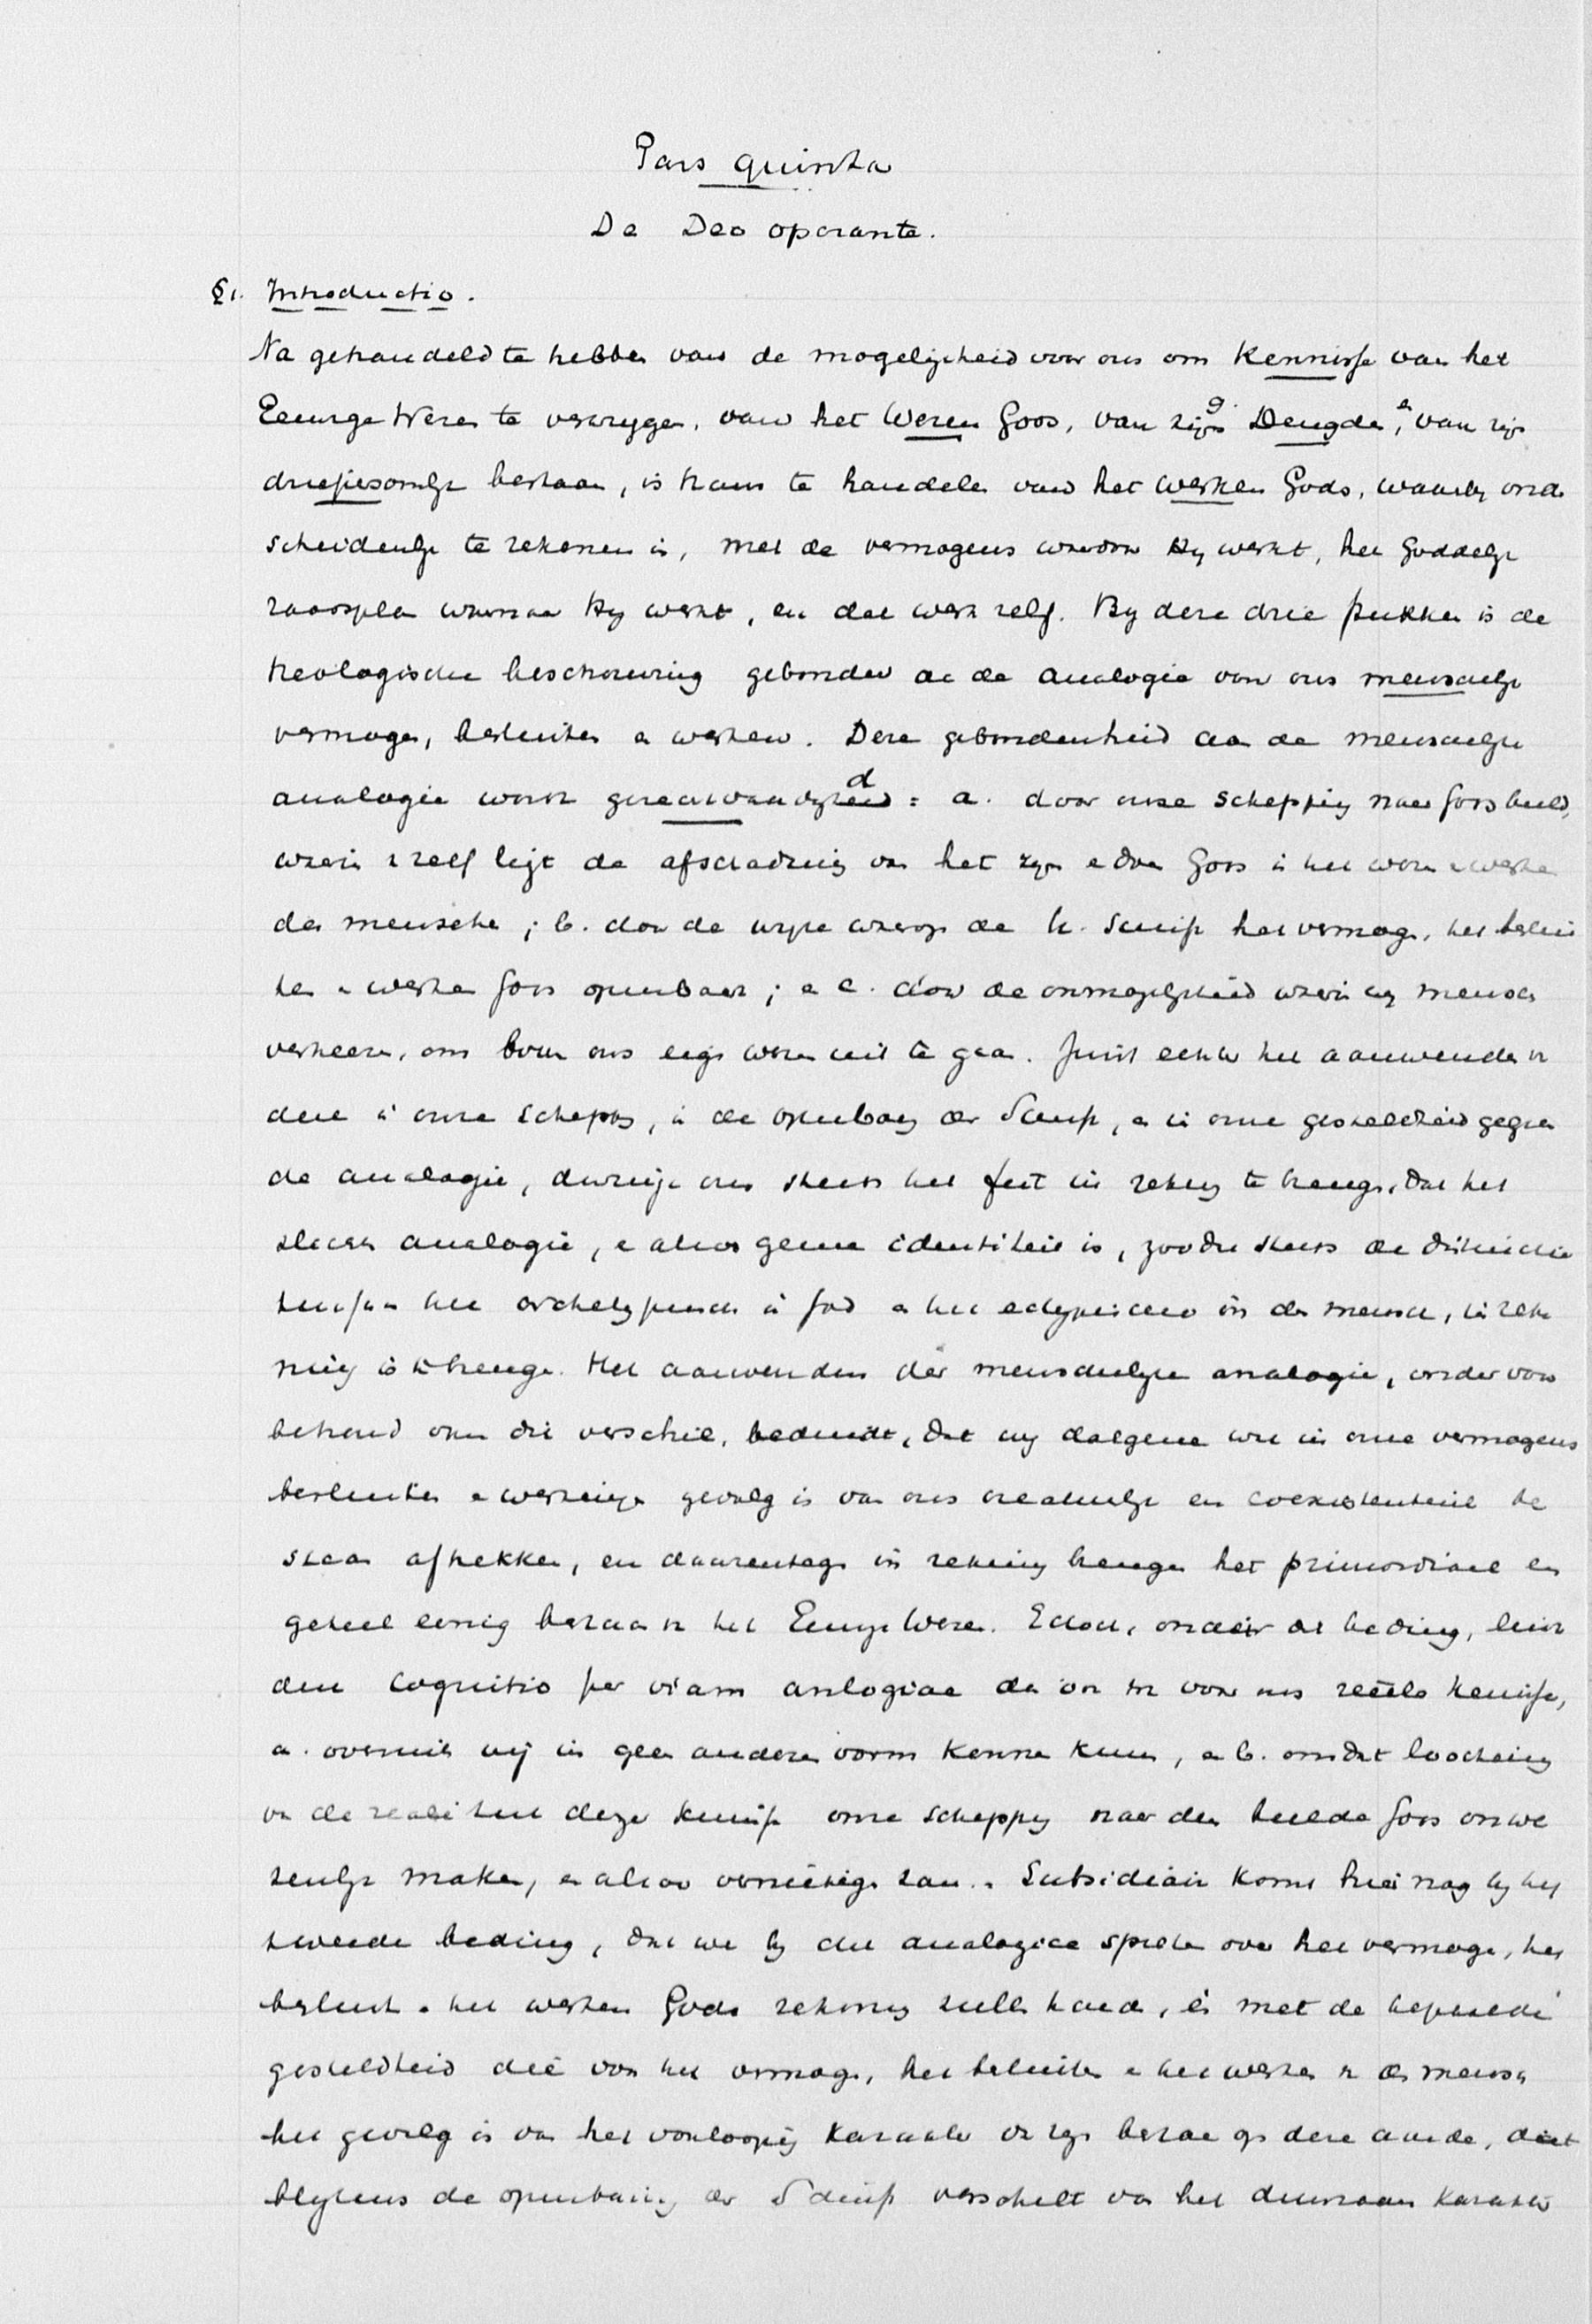 Pars quinta
De Deo operante.
§1. Introductio.
Na gehandeld te hebben van de mogelijkheid voor ons om Kennisse van het
Eeuwige Wezen te verkrygen, van het Wezen Gods, van zijn Deugden, van zijn
driepersoonlijk bestaan, is thans te handelen van het werken Gods, waarby onder
scheidenlijk te rekenen is, met de vermogens waardoor Hy werkt, het Goddelijk
raadsplan waarnaar Hy werkt, en dat werk zelf. By deze drie stukken is de
theologische beschouwing gebonden aan de analogie van ons menschelijk
vermogen, besluiten en werken. Deze gebondenheid aan de menschelijke
analogie wordt gerechtvaardigd = a. door onze schepping naar Gods beeld,
waarin van zelf ligt de afschaduwing van het zyn en doen Gods in het wezen en werken
des menschen; b. door de wyze waarop de H. Schrift het vermogen, het beslui
ten en werken Gods openbaart; en c. door de onmogelijkheid waarin wy menschen
verkeeren, om boven ons eigen wezen uit te gaan. Juist echter het aanwenden van
deze in onze schepping, in de openbaring der Schrift, en in onze gesteldheid gegeven
de analogie, dwingt ons steeds het feit in rekening te brengen, dat het
slechts analogie, en alzoo geene identiteit is, zoodat steeds de distinctie
tusschen het archetypische in God en het ectypische in den mensch, in reke
ning is te brengen. Het aanwenden der menschelijke analogie, onder voor
behoud van dit verschil, beduidt, dat wy datgene wat in onze vermogens
besluiten en werkingen gevolg is van ons creatuurlijk en coexistentieel be
staan aftrekken, en daarentegen in rekening brengen het primordiaal en
geheel eenig bestaan van het Eeuwige Wezen. Edoch, onder dit beding, leidt
deze Cognitio per viam analogiae dan ook tot voor ons reëele kennisse,
a. overmits wij in geen anderen vorm kennen kunnen, en b. omdat loochening
van de realiteit dezer kennisse onze schepping naar den beelde Gods onwe
zenlijk maken, en alzoo vernietigen zou. Subsidiair komt hier nog by het
tweede beding, dat we by dit analogice spreken over het vermogen, het
besluit en het werken Gods rekening zullen houden, met de bepaalde
gesteldheid die van het vermogen, het besluiten en het werken van den mensch
het gevolg is van het voorloopig karakter van zyn bestaan op deze aarde, dat
blykens de openbaring der Schrift verschilt van het duurzaam karakter